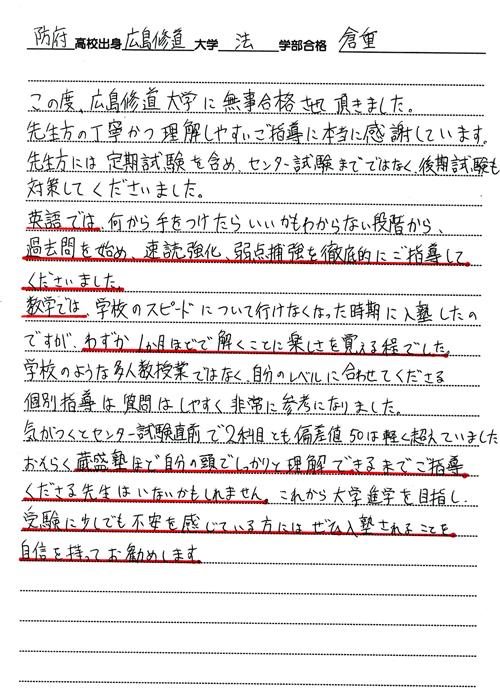 防府高校出身広島修道大学 法 学部合格 倉重
この度、広島修道大学に無事合格させて頂きました。
先生方の丁寧かつ理解しやすいご指導に本当に感謝しています。
先生方には定期試験を含め、センター試験までではなく、後期試験も
対策してくださいました。
英語では、何から手をつけたらいいかもわからない段階から、
過去問を始め、速読強化、弱点補強を徹底的にご指導して
くださいました。
数学では、学校のスピードについて行けなくなった時期に入塾したの
ですが、わずか1か月ほどで解くことに楽しさを覚える程でした。
学校のような多人数授業ではなく、自分のレベルに合わせてくださる
個別指導は質問はしやすく非常に参考になりました。
気がつくとセンター試験直前で2科目とも偏差値50は軽く超えていました
おそらく蔵盛塾ほど自分の頭でしっかりと理解できるまでご指導
くださる先生はいないかもしれません。これから大学進学を目指し、
受験に少しでも不安を感じている方にはぜひ入塾されることを
自信を持ってお勧めします。